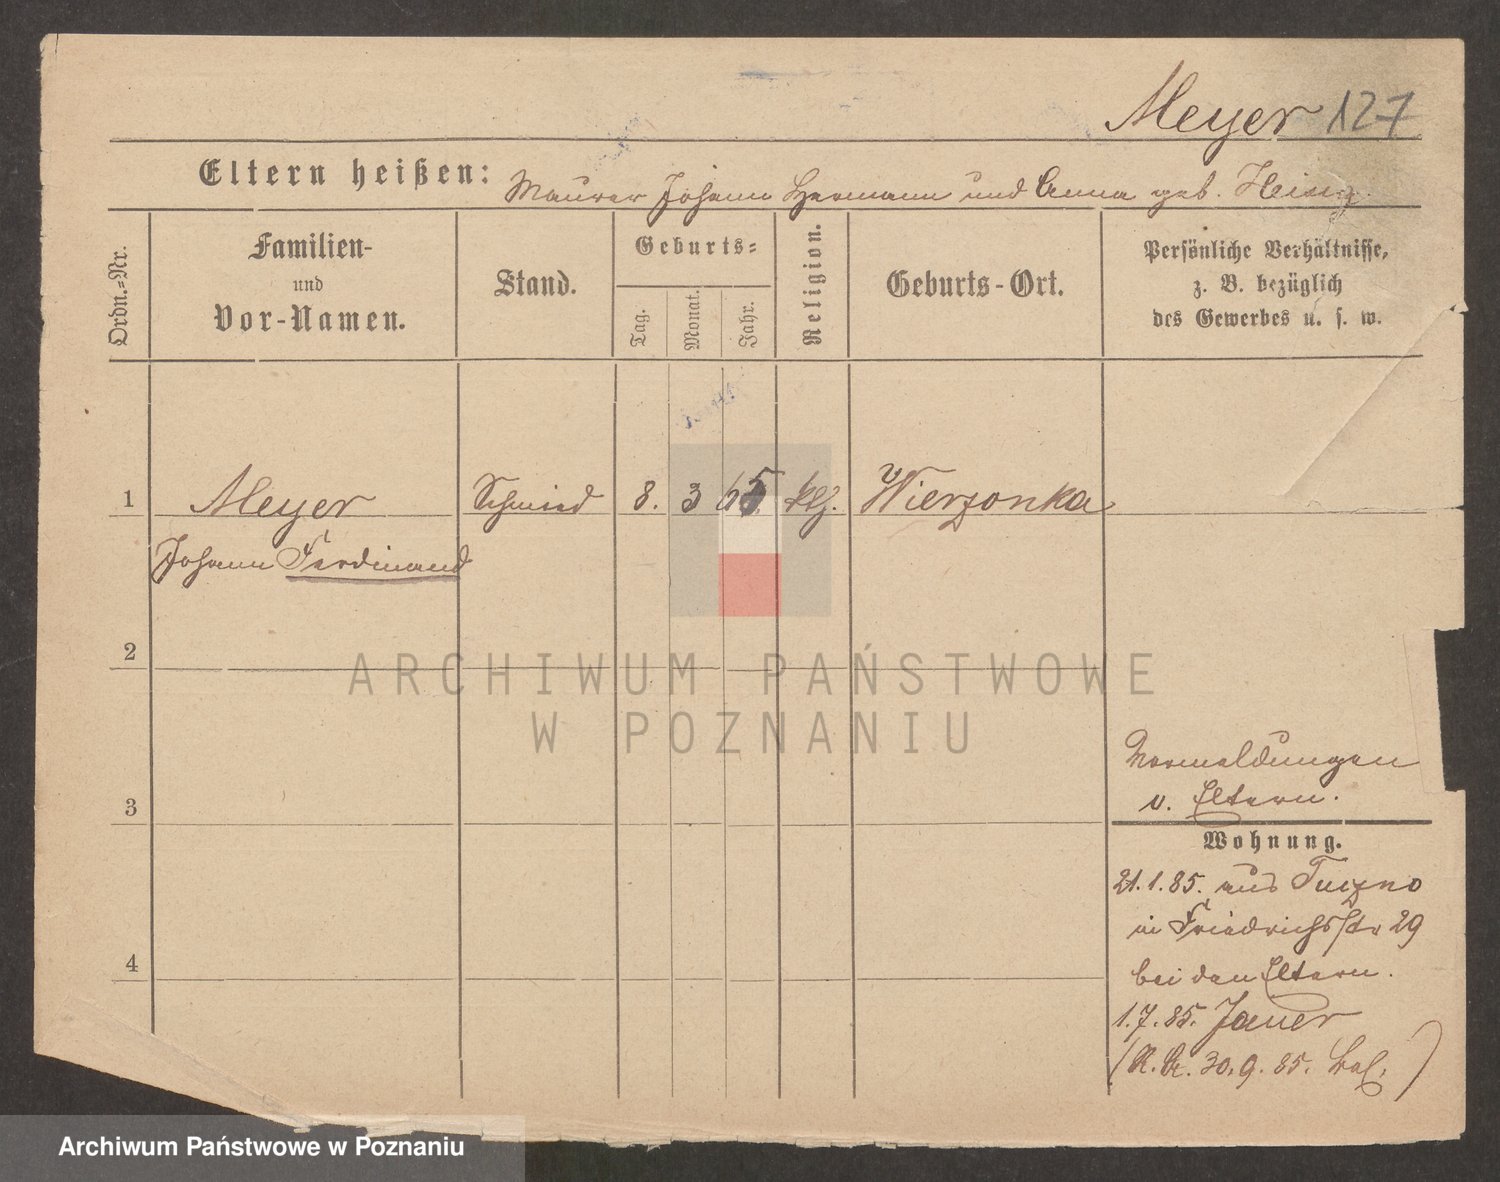 Meyer 127
Eltern heißen: Maurer Johann Hermann und Anna geb. Heinz
Ordn.=Nr.
Familien-
und
Vor-Namen.
Stand.
Geburts=
Tag.
Monat.
Jahr.
Religion.
Geburts-Ort.
Persönliche Verhältnisse,
z. B. bezüglich
des Gewerbes u. s. w.
1 Meyer Schmied 8. 3 65 kth. Wierzonka
Johann Ferdinand
2
ARCHIWUM PAŃSTWOWE
W POZNANIU
Vormeldungen
3 v. Eltern.
Wohnung.
21.1.85. aus Tuczno
in Friedrichsstr 29
4 bei den Eltern.
1.7.85. Jauer
30.9.85.
Archiwum Państwowe w Poznaniu